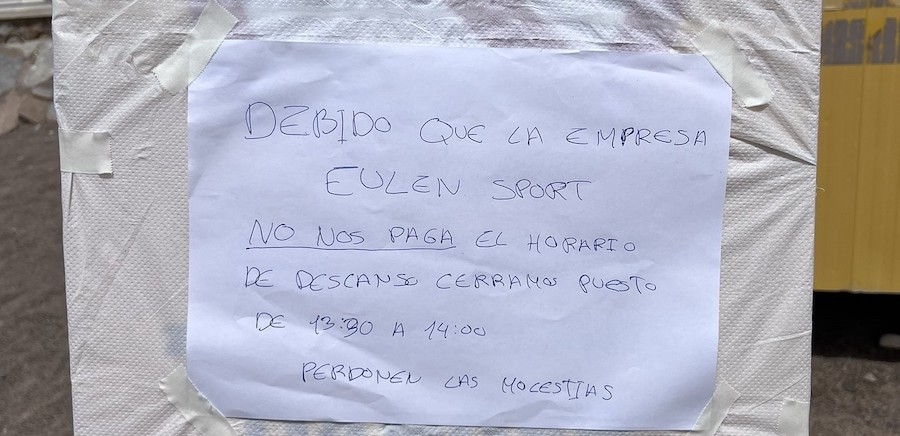 DEBIDO QUE LA EMPRESA
EULEN SPORT
NO NOS PAGA EL HORARIO
DE DESCANSO CERRAMOS PUESTO
DE 13:30 A 14:00
PERDONEN LAS MOLESTIAS